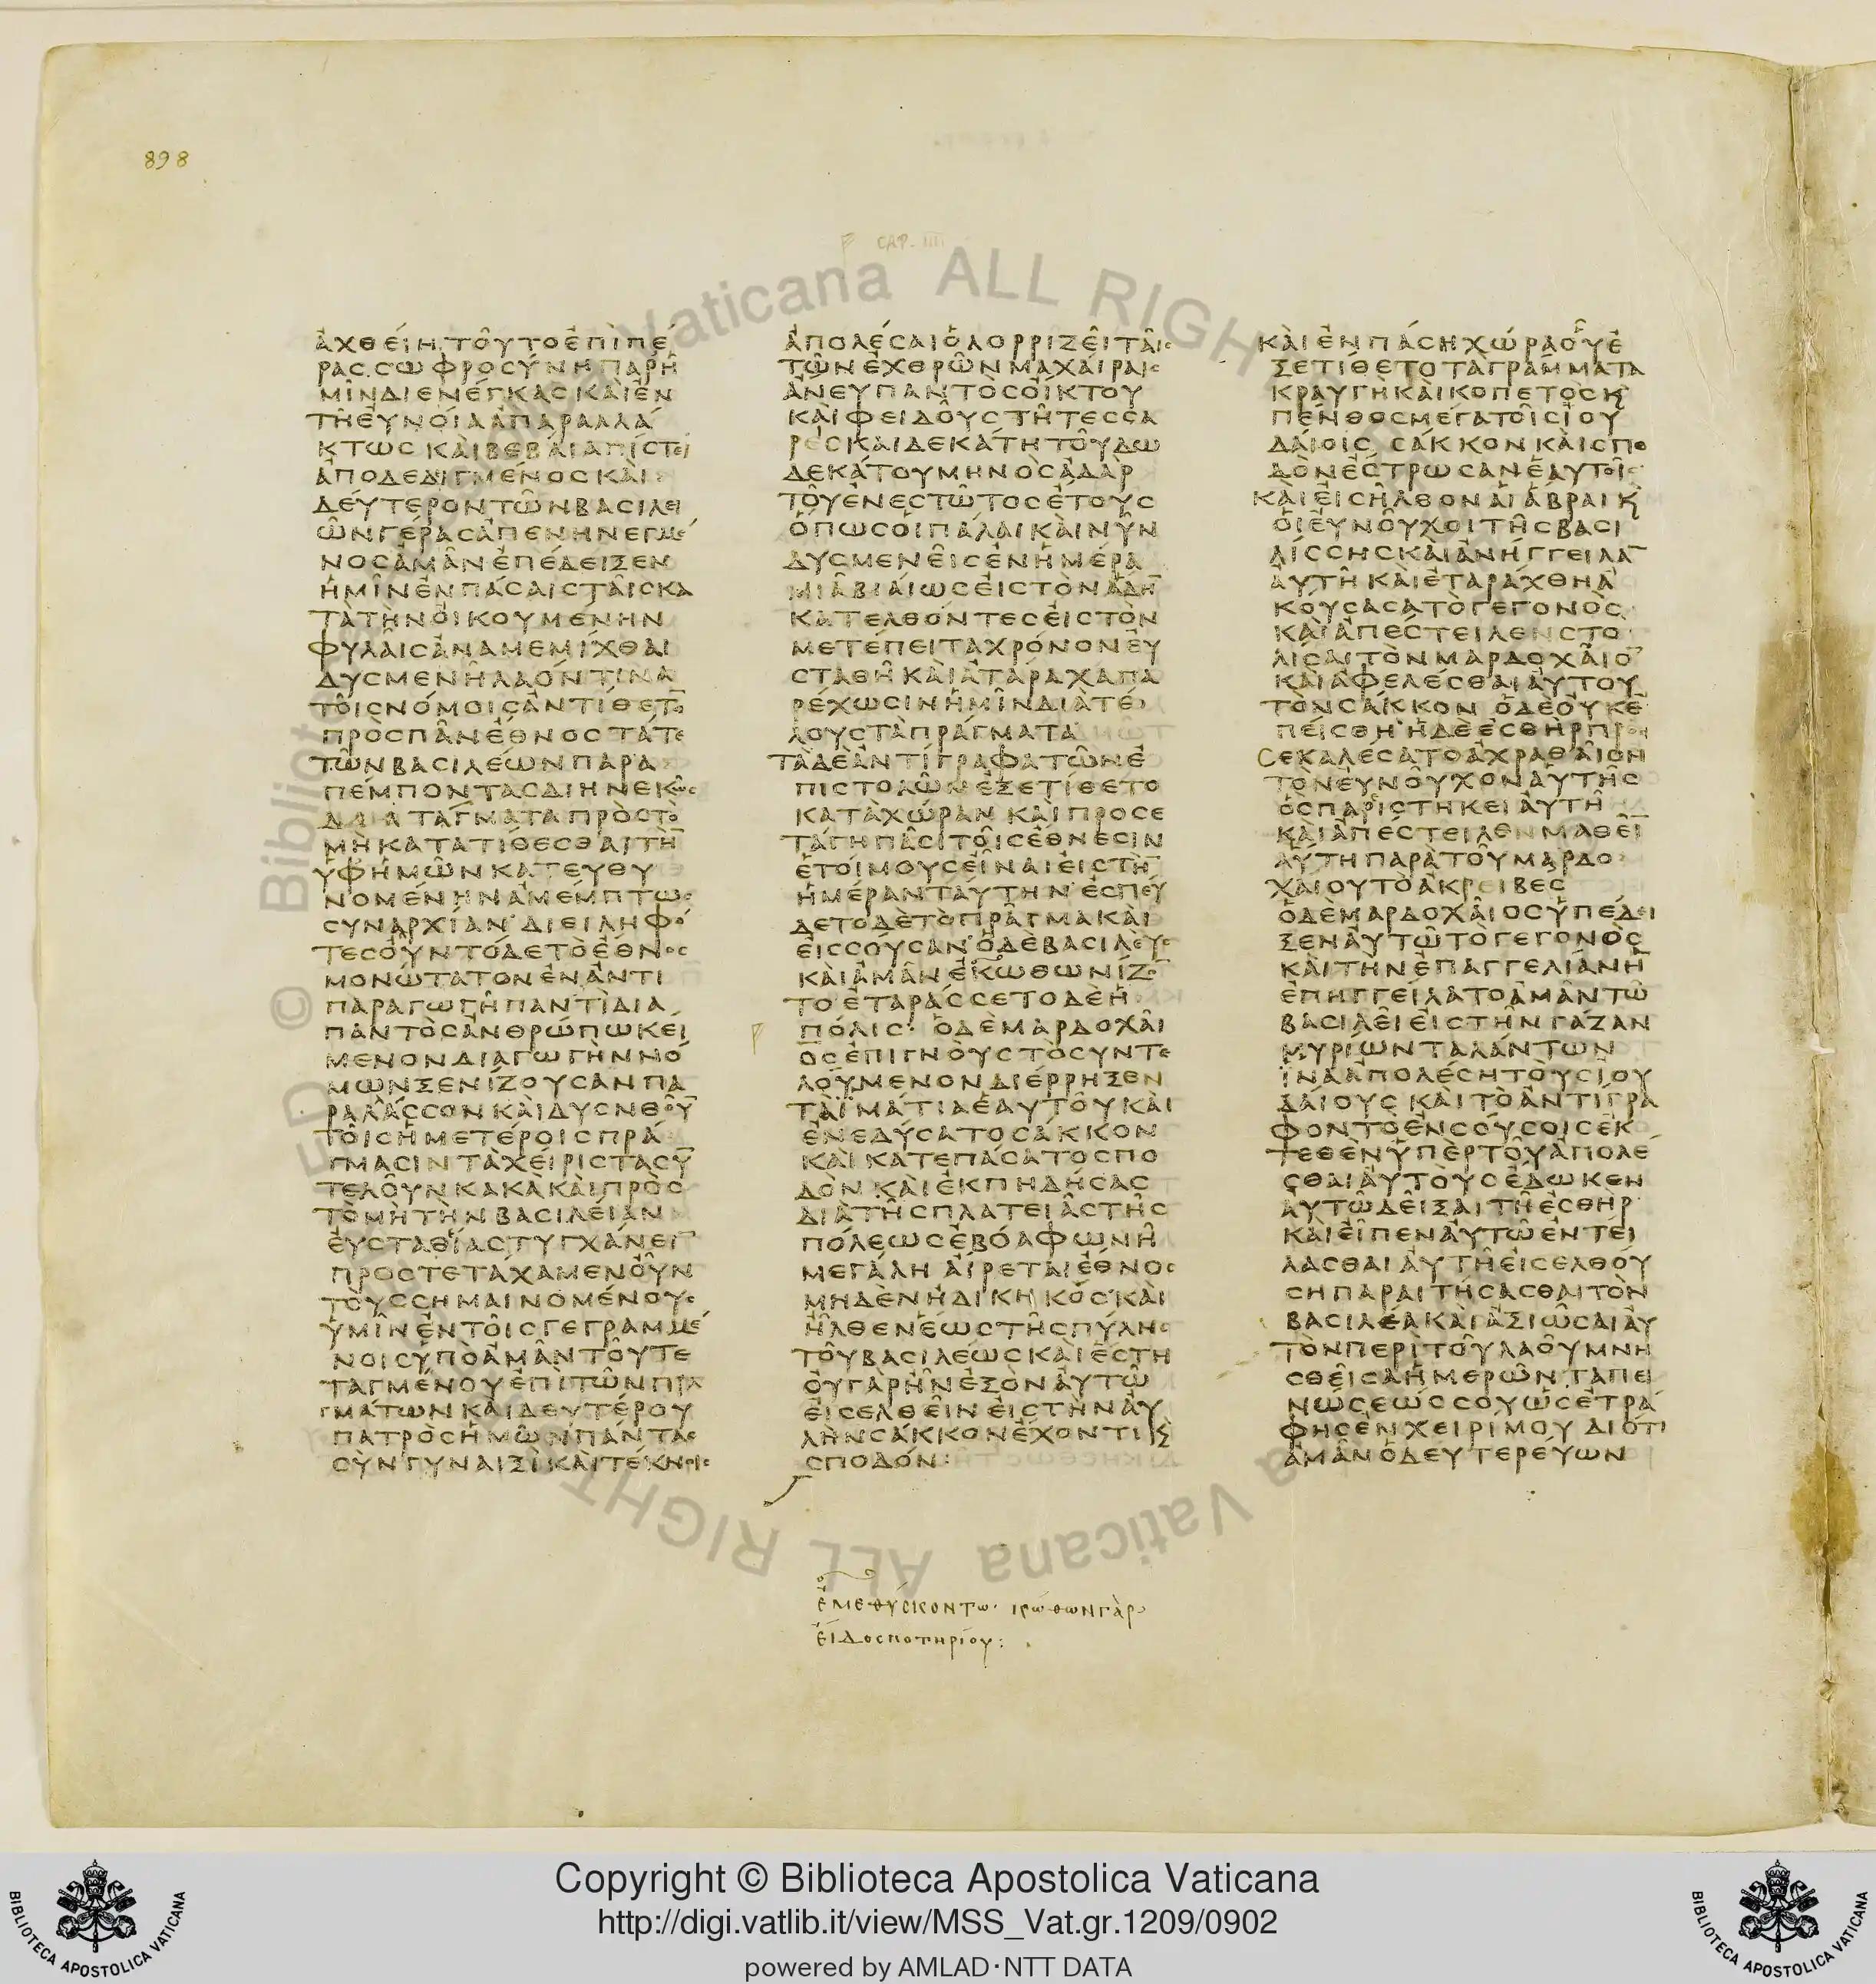 898
CAP. IIII
ἀχθείη τοῦτο ἐπὶ πέ
ρας. σωφροσύνη παρ' ἡ
μῖν διενέγκας καὶ ἐν
τῇ εὐνοίᾳ ἀπαραλλά
κτως καὶ βεβαίᾳ πίστει
ἀποδεδιγμένος καὶ
δεύτερον τῶν βασιλει
ῶν γέρας ἀπενηνεγμέ
νος ἁμὰν ἐπέδειξεν
ἡμῖν ἐν πάσαις ταῖς κα
τὰ τὴν οἰκουμένην
φυλαῖς ἀναμεμίχθαι
δυσμενῆ λαόν τινα
τοῖς νόμοις ἀντίθετο̅
πρὸς πᾶν ἔθνος τά τε
τῶν βασιλέων παρα
πέμποντας διηνεκῶς
διατάγματα πρὸς τὸ
μὴ κατατίθεσθαι τὴ̅
ὑφ' ἡμῶν κατευθυ
νομένην ἀμέμπτως
συναρχίαν διειληφό
τες οὖν τόδε τὸ ἔθνος
μονώτατον ἐν ἀντι
παραγωγῇ παντὶ δια
παντὸς ἀνθρώπῳ κεί
μενον διαγωγὴν νό
μων ξενίζουσαν πα
ραλάσσον καὶ δυσνοοῦ̅
τοῖς ἡμετέροις πρά
γμασιν τὰ χείριστα συ̅
τελοῦν κακὰ καὶ πρὸς
τὸ μὴ τὴν βασιλείαν
εὐσταθίας τυγχάνει̅
προστετάχαμεν οὖν
τοὺς σημαινομένους
ὑμῖν ἐν τοῖς γεγραμμέ
νοις ὑπὸ ἁμὰν τοῦ τε
ταγμένου ἐπὶ τῶν πρα
γμάτων καὶ δευτέρου
πατρὸς ἡμῶν πάντας
σὺν γυναιξὶ καὶ τέκνοις
ἀπολέσαι ὁλορριζεὶ ταῖς
τῶν ἐχθρῶν μαχαίραις
ἄνευ παντὸς οἴκτου
καὶ φειδοῦς τῇ τεσσα
ρεσκαιδεκάτῃ τοῦ δω
δεκάτου μηνὸς ἀδὰρ
τοῦ ἐνεστῶτος ἔτους
ὅπως οἱ πάλαι καὶ νῦν
δυσμενεῖς ἐν ἡμέρᾳ
μιᾷ βιαίως εἰς τὸν ᾅδη̅
κατελθόντες εἰς τὸν
μετέπειτα χρόνον εὐ
σταθῆ καὶ ἀτάραχα πα
ρέχωσιν ἡμῖν διὰ τέ
λους τὰ πράγματα
τὰ δὲ ἀντίγραφα τῶν ἐ
πιστολῶν ἐξετίθετο
κατὰ χώραν καὶ προσε
τάγη πᾶσι τοῖς ἔθνεσιν
ἑτοίμους εἶναι εἰς τὴ̅
ἡμέραν ταύτην ἐσπεύ
δετο δὲ τὸ πρᾶγμα καὶ
εἰς σούσαν ὁ δὲ βασιλεὺς
καὶ ἁμὰν ἐκωθωνίζο̅
το ἐταράσσετο δὲ ἡ
πόλις· ὁ δὲ μαρδοχαῖ
ος ἐπιγνοὺς τὸ συντε
λούμενον διέρρηξεν
τὰ ἱμάτια ἑαυτοῦ καὶ
ἐνεδύσατο σάκκον
καὶ κατεπάσατο σπο
δὸν καὶ ἐκπηδήσας
διὰ τῆς πλατείας τῆς
πόλεως ἐβόα φωνῇ
μεγάλῃ αἴρεται ἔθνος
μηδὲν ἠδικηκός καὶ
ἦλθεν ἕως τῆς πύλης
τοῦ βασιλέως καὶ ἔστη
οὐ γὰρ ἦν ἐξὸν αὐτῷ
εἰσελθεῖν εἰς τὴν αὐ
λὴν σάκκον ἔχοντι ϗ
σποδόν:
καὶ ἐν πάσῃ χώρᾳ οὗ ἐ
ξετίθετο τὰ γράμματα
κραυγὴ καὶ κοπετὸς ϗ
πένθος μέγα τοῖς ἰου
δαίοις σάκκον καὶ σπο
δὸν ἔστρωσαν ἑαυτοῖς
καὶ εἰσῆλθον αἱ ἅβραι ϗ
οἱ εὐνοῦχοι τῆς βασι
λίσσης καὶ ἀνήγγειλα̅
αὐτῇ καὶ ἐταράχθη ἀ
κούσασα τὸ γεγονὸς
καὶ ἀπέστειλεν στο
λίσαι τὸν μαρδοχαῖο̅
καὶ ἀφελέσθαι αὐτοῦ
τὸν σάκκον ὁ δὲ οὐκ ἐ
πείσθη ἡ δὲ ἐσθὴρ προ
σεκαλέσατο ἀχραθαῖον
τὸν εὐνοῦχον αὐτῆς
ὃς παριστήκει αὐτῇ
καὶ ἀπέστειλεν μαθεῖ̅
αὐτῇ παρὰ τοῦ μαρδο
χαίου τὸ ἀκρειβές
ὁ δὲ μαρδοχαῖος ὑπέδει
ξεν αὐτῷ τὸ γεγονὸς
καὶ τὴν ἐπαγγελίαν ἣ̅
ἐπηγγείλατο ἁμὰν τῷ
βασιλεῖ εἰς τὴν γάζαν
μυρίων ταλάντων
ἵνα ἀπολέσῃ τοὺς ἰου
δαίους καὶ τὸ ἀντίγρα
φον τὸ ἐν σούσοις ἐκ
τεθὲν ὑπὲρ τοῦ ἀπολέ
σθαι αὐτοὺς ἔδωκεν
αὐτῷ δεῖξαι τῇ ἐσθὴρ
καὶ εἶπεν αὐτῷ ἐντεί
λασθαι αὐτῇ εἰσελθού
σῃ παραιτήσασθαι τὸν
βασιλέα καὶ ἀξιῶσαι αὐ
τὸν περὶ τοῦ λαοῦ μνη
σθεῖσα ἡμερῶν ταπει
νώσεώς σου ὡς ἐτρά
φης ἐν χειρί μου διότι
ἁμὰν ὁ δευτερεύων
ἐμεθύσκοντω· κώθων γὰρ
εἶδος ποτηρίου:
Copyright © Biblioteca Apostolica Vaticana
http://digi.vatlib.it/view/MSS_Vat.gr.1209/0902
powered by AMLAD·NTT DATA
BIBLIOTECA APOSTOLICA VATICANA
BIBLIOTECA APOSTOLICA VATICANA